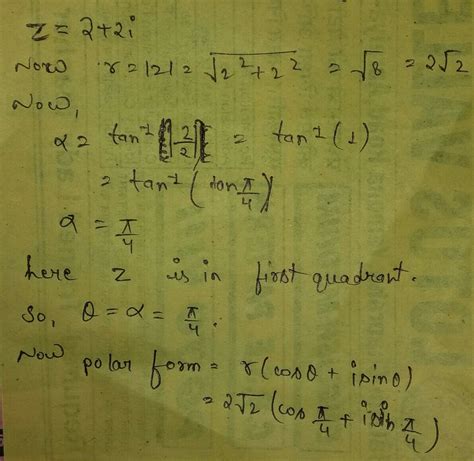 z = 2+2i
Now r = |z| = √2²+2² = √8 = 2√2
Now,
α = tan⁻¹ |2/2| = tan⁻¹ (1)
= tan⁻¹ (tan π/4)
α = π/4
here z is in first quadrant.
so, θ = α = π/4.
Now polar form = r(cosθ + isinθ)
= 2√2 (cos π/4 + i sin π/4)